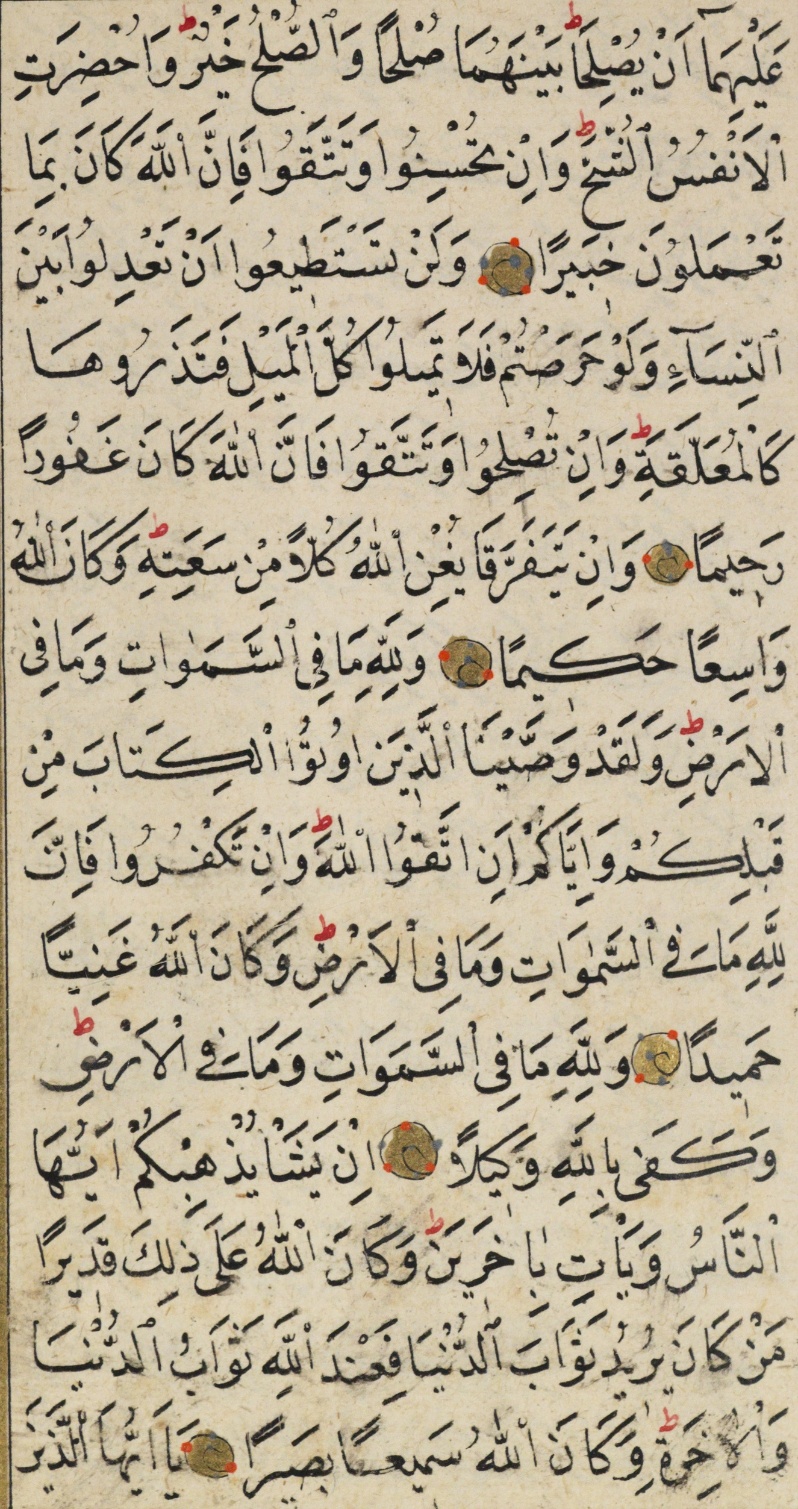 عَلَيْهِمَآ اَنْ يُصْلِحَا بَيْنَهُمَا صُلْحًا وَالصُّلْحُ خَيْرٌ ط وَاُحْضِرَتِ
الْاَنْفُسُ الشُّحَّ ط وَاِنْ تُحْسِنُوا وَتَتَّقُوا فَاِنَّ اللّٰهَ كَانَ بِمَا
تَعْمَلُونَ خَبِيرًا وَلَنْ تَسْتَطِيعُوا اَنْ تَعْدِلُوا بَيْنَ
النِّسَآءِ وَلَوْ حَرَصْتُمْ فَلَا تَمِيلُوا كُلَّ الْمَيْلِ فَتَذَرُوهَا
كَالْمُعَلَّقَةِ ط وَاِنْ تُصْلِحُوا وَتَتَّقُوا فَاِنَّ اللّٰهَ كَانَ غَفُورًا
رَحِيمًا وَاِنْ يَتَفَرَّقَا يُغْنِ اللّٰهُ كُلًّا مِنْ سَعَتِهِ ط وَكَانَ اللّٰهُ
وَاسِعًا حَكِيمًا وَلِلّٰهِ مَا فِى السَّمٰوَاتِ وَمَا فِى
الْاَرْضِ ط وَلَقَدْ وَصَّيْنَا الَّذِينَ اُوتُوا الْكِتَابَ مِنْ
قَبْلِكُمْ وَاِيَّاكُمْ اَنِ اتَّقُوا اللّٰهَ ط وَاِنْ تَكْفُرُوا فَاِنَّ
لِلّٰهِ مَا فِى السَّمٰوَاتِ وَمَا فِى الْاَرْضِ ط وَكَانَ اللّٰهُ غَنِيًّا
حَمِيدًا وَلِلّٰهِ مَا فِى السَّمَوَاتِ وَمَا فِى الْاَرْضِ ط
وَكَفٰى بِاللّٰهِ وَكِيلًا اِنْ يَشَأْ يُذْهِبْكُمْ اَيُّهَا
النَّاسُ وَيَأْتِ بِاٰخَرِينَ ط وَكَانَ اللّٰهُ عَلَى ذٰلِكَ قَدِيرًا
مَنْ كَانَ يُرِيدُ ثَوَابَ الدُّنْيَا فَعِنْدَ اللّٰهِ ثَوَابُ الدُّنْيَا
وَالْاٰخِرَةِ ط وَكَانَ اللّٰهُ سَمِيعًا بَصِيرًا يَا اَيُّهَا الَّذِينَ